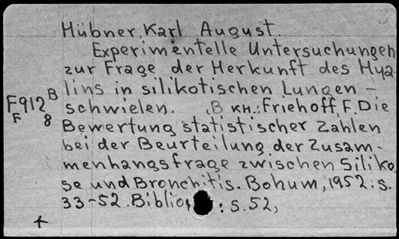 Hübner, Karl August.
Experimentelle Untersuchungen
zur Frage der Herkunft des Hya-
lins in silikotischen Lungen-
schwielen. В кн.: Friehoff F. Die
Bewertung statistischer Zahlen
bei der Beurteilung der Zusam-
menhangsfrage zwischen Siliko-
se und Bronchitis. Bohum, 1952. s.
33-52. Bibliogr: s. 52,
F912 B
F 8